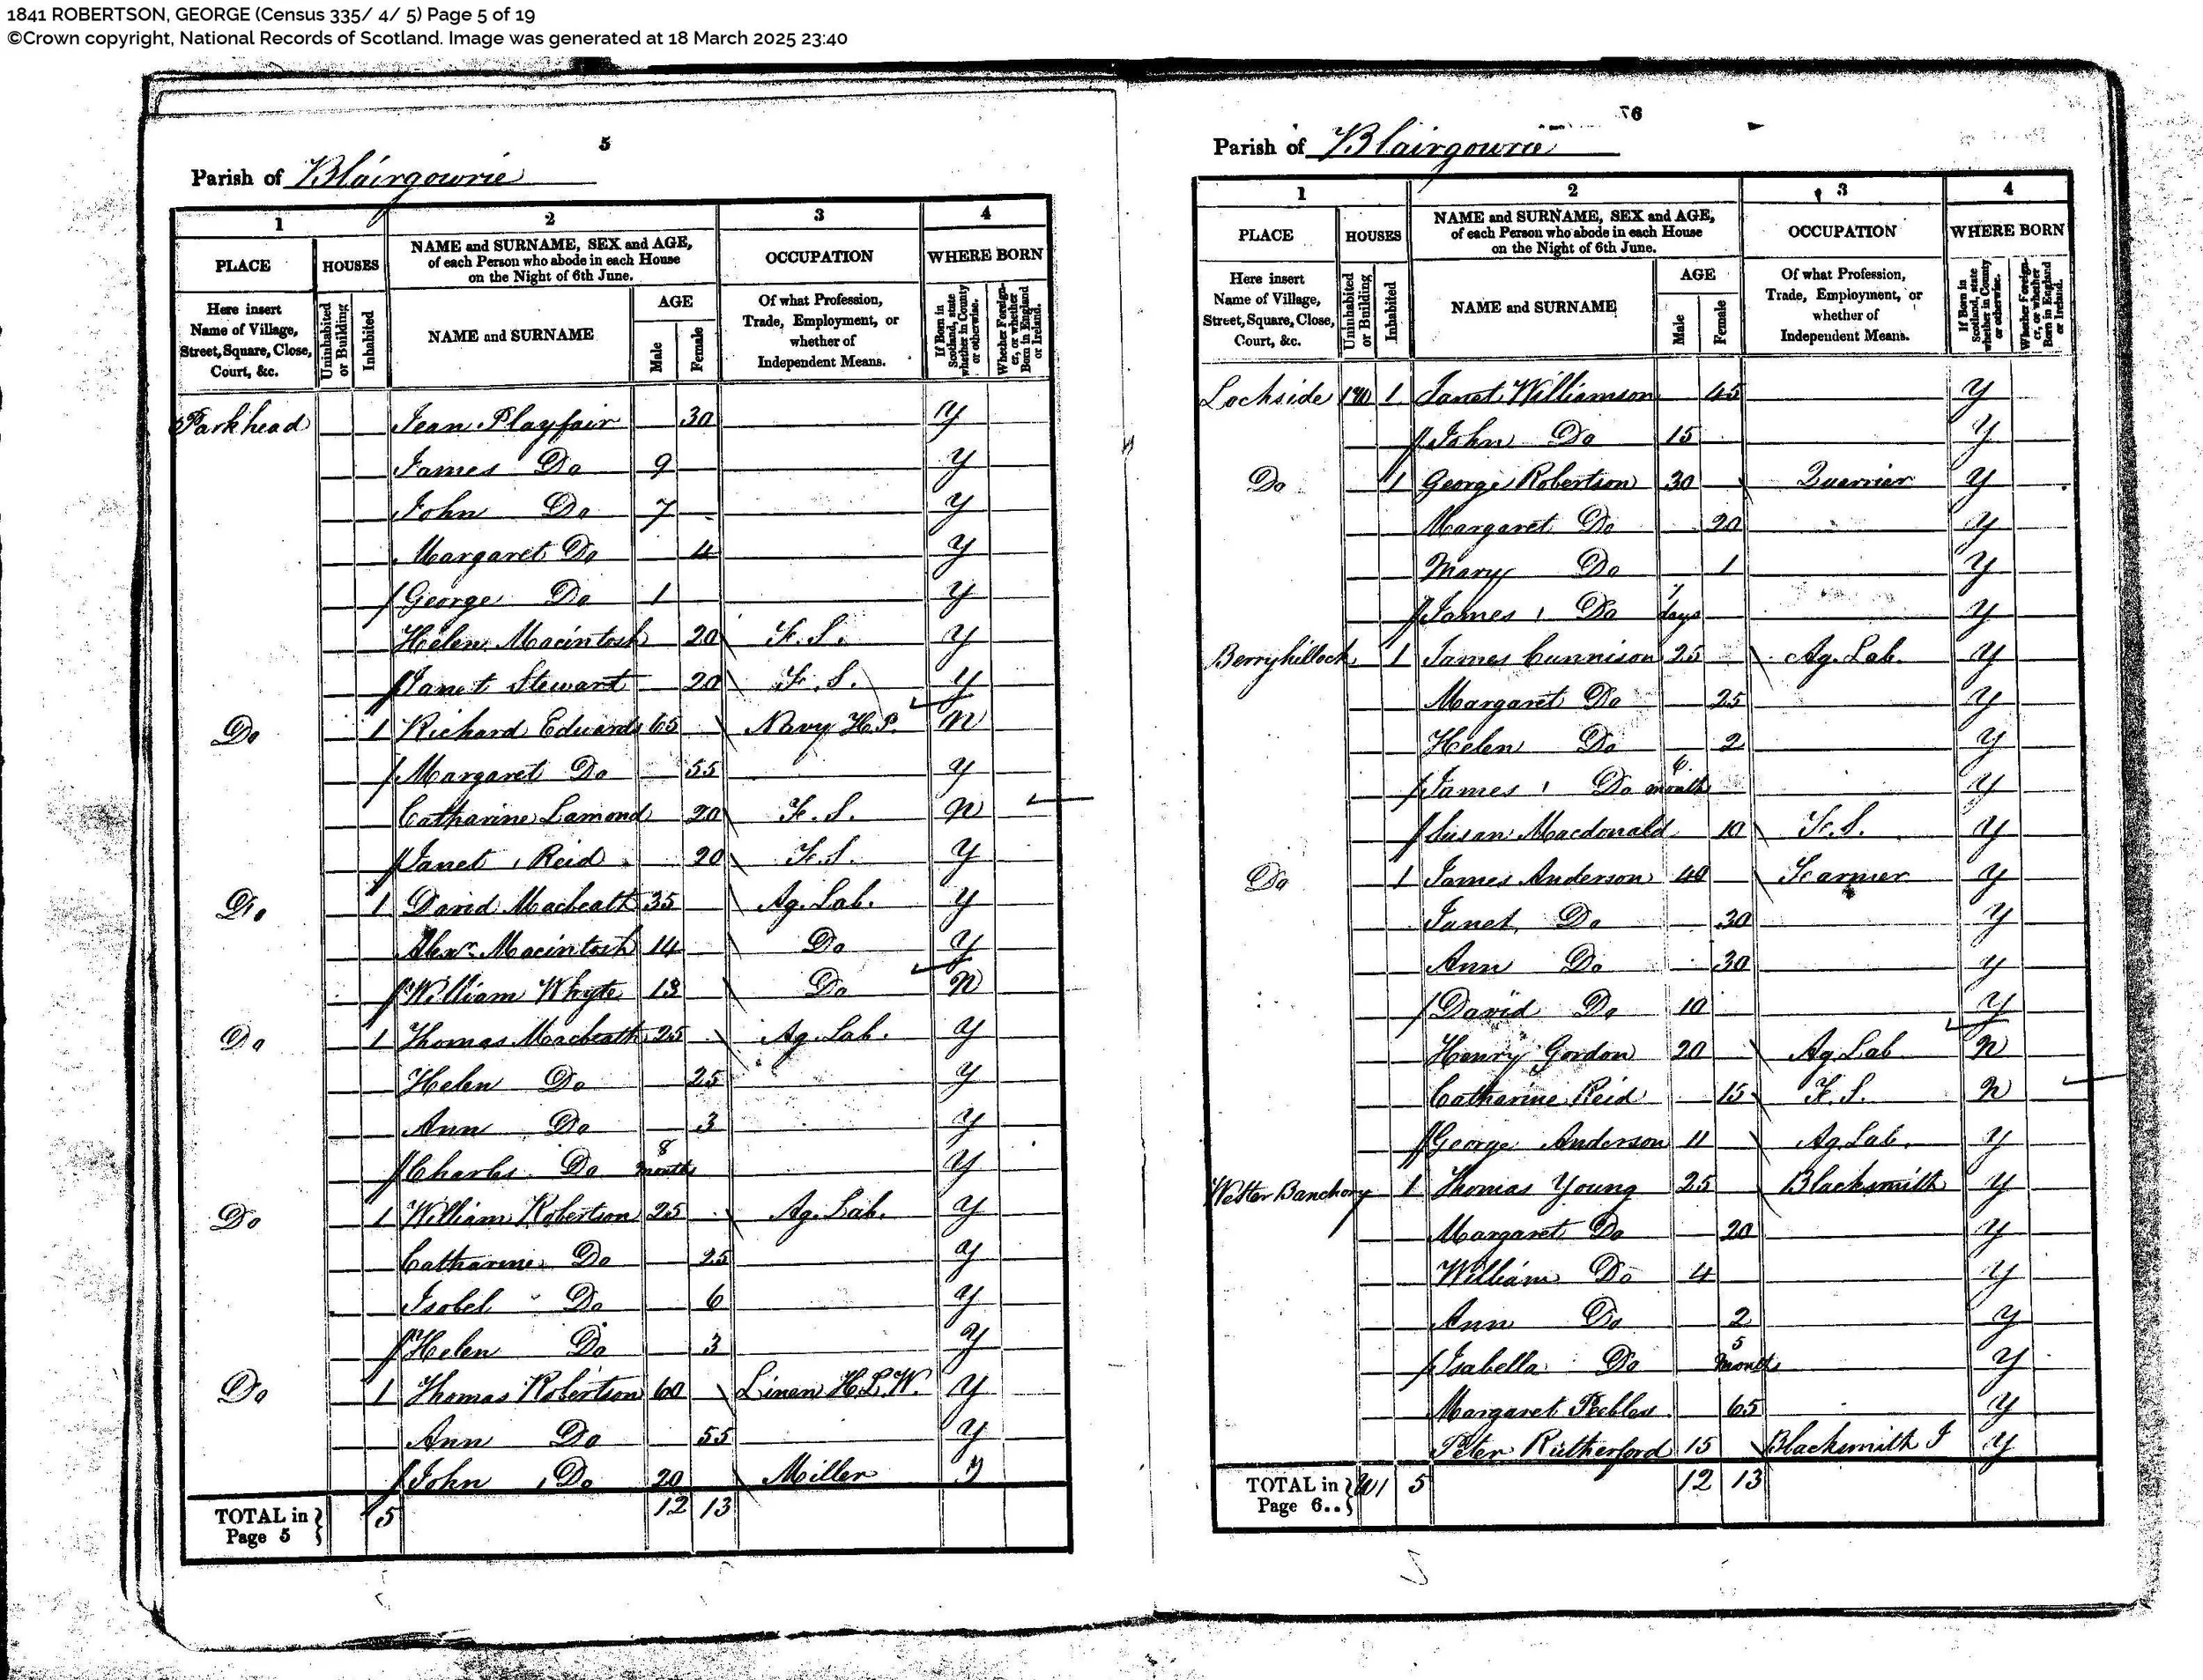 1841 ROBERTSON, GEORGE (Census 335/ 4/ 5) Page 5 of 19
©Crown copyright, National Records of Scotland. Image was generated at 18 March 2025 23:40
5
Parish of Blairgowrie
1 2 3 4
PLACE HOUSES NAME and SURNAME, SEX and AGE, of each Person who abode in each House on the Night of 6th June. OCCUPATION WHERE BORN
Here insert Name of Village, Street, Square, Close, Court, &c. Uninhabited or Building Inhabited NAME and SURNAME AGE Male Female Of what Profession, Trade, Employment, or whether of Independent Means. If Born in Scotland, state whether in County or otherwise. Whether Foreigner, or whether Born in England or Ireland.
Parkhead Jean Playfair 30 Y
James Do 9 Y
John Do 7 Y
Margaret Do 4 Y
George Do 1 Y
Helen Macintosh 20 F. S. Y
Janet Stewart 20 F. S. Y
Do 1 Richard Edwards 65 Navy H.P. N
Margaret Do 55 Y
Catharine Lamond 20 F. S. N
Janet Reid 20 F. S. Y
Do 1 David Macbeath 35 Ag. Lab. Y
Alexr. Macintosh 14 Do Y
William Whyte 13 Do N
Do 1 Thomas Macbeath 25 Ag. Lab. Y
Helen Do 25 Y
Ann Do 3 Y
Charles Do 8 months Y
Do 1 William Robertson 25 Ag. Lab. Y
Catharine Do 25 Y
Isobel Do 6 Y
Helen Do 3 Y
Do 1 Thomas Robertson 60 Linen H.L.W. Y
Ann Do 55 Y
John Do 20 Miller Y
TOTAL in Page 5 5 12 13
6
Parish of Blairgowrie
1 2 3 4
PLACE HOUSES NAME and SURNAME, SEX and AGE, of each Person who abode in each House on the Night of 6th June. OCCUPATION WHERE BORN
Here insert Name of Village, Street, Square, Close, Court, &c. Uninhabited or Building Inhabited NAME and SURNAME AGE Male Female Of what Profession, Trade, Employment, or whether of Independent Means. If Born in Scotland, state whether in County or otherwise. Whether Foreigner, or whether Born in England or Ireland.
Lochside 1 Janet Williamson 45 Y
John Do 15 Y
Do 1 George Robertson 30 Querrier Y
Margaret Do 20 Y
Mary Do 1 Y
James Do 7 days Y
Berryhillock 1 James Cunnison 25 Ag. Lab. Y
Margaret Do 25 Y
Helen Do 2 Y
James Do 6 months Y
Susan Macdonald 10 F. S. Y
Do 1 James Anderson 40 Farmer Y
Janet Do 30 Y
Ann Do 30 Y
David Do 10 Y
Henry Gordon 20 Ag. Lab N
Catharine Reid 15 F. S. N
George Anderson 11 Ag. Lab. Y
Wester Banchory 1 Thomas Young 25 Blacksmith Y
Margaret Do 20 Y
William Do 4 Y
Ann Do 2 Y
Isabella Do 5 months Y
Margaret Peebles 65 Y
Peter Rutherford 15 Blacksmith J Y
TOTAL in Page 6.. 1 5 12 13